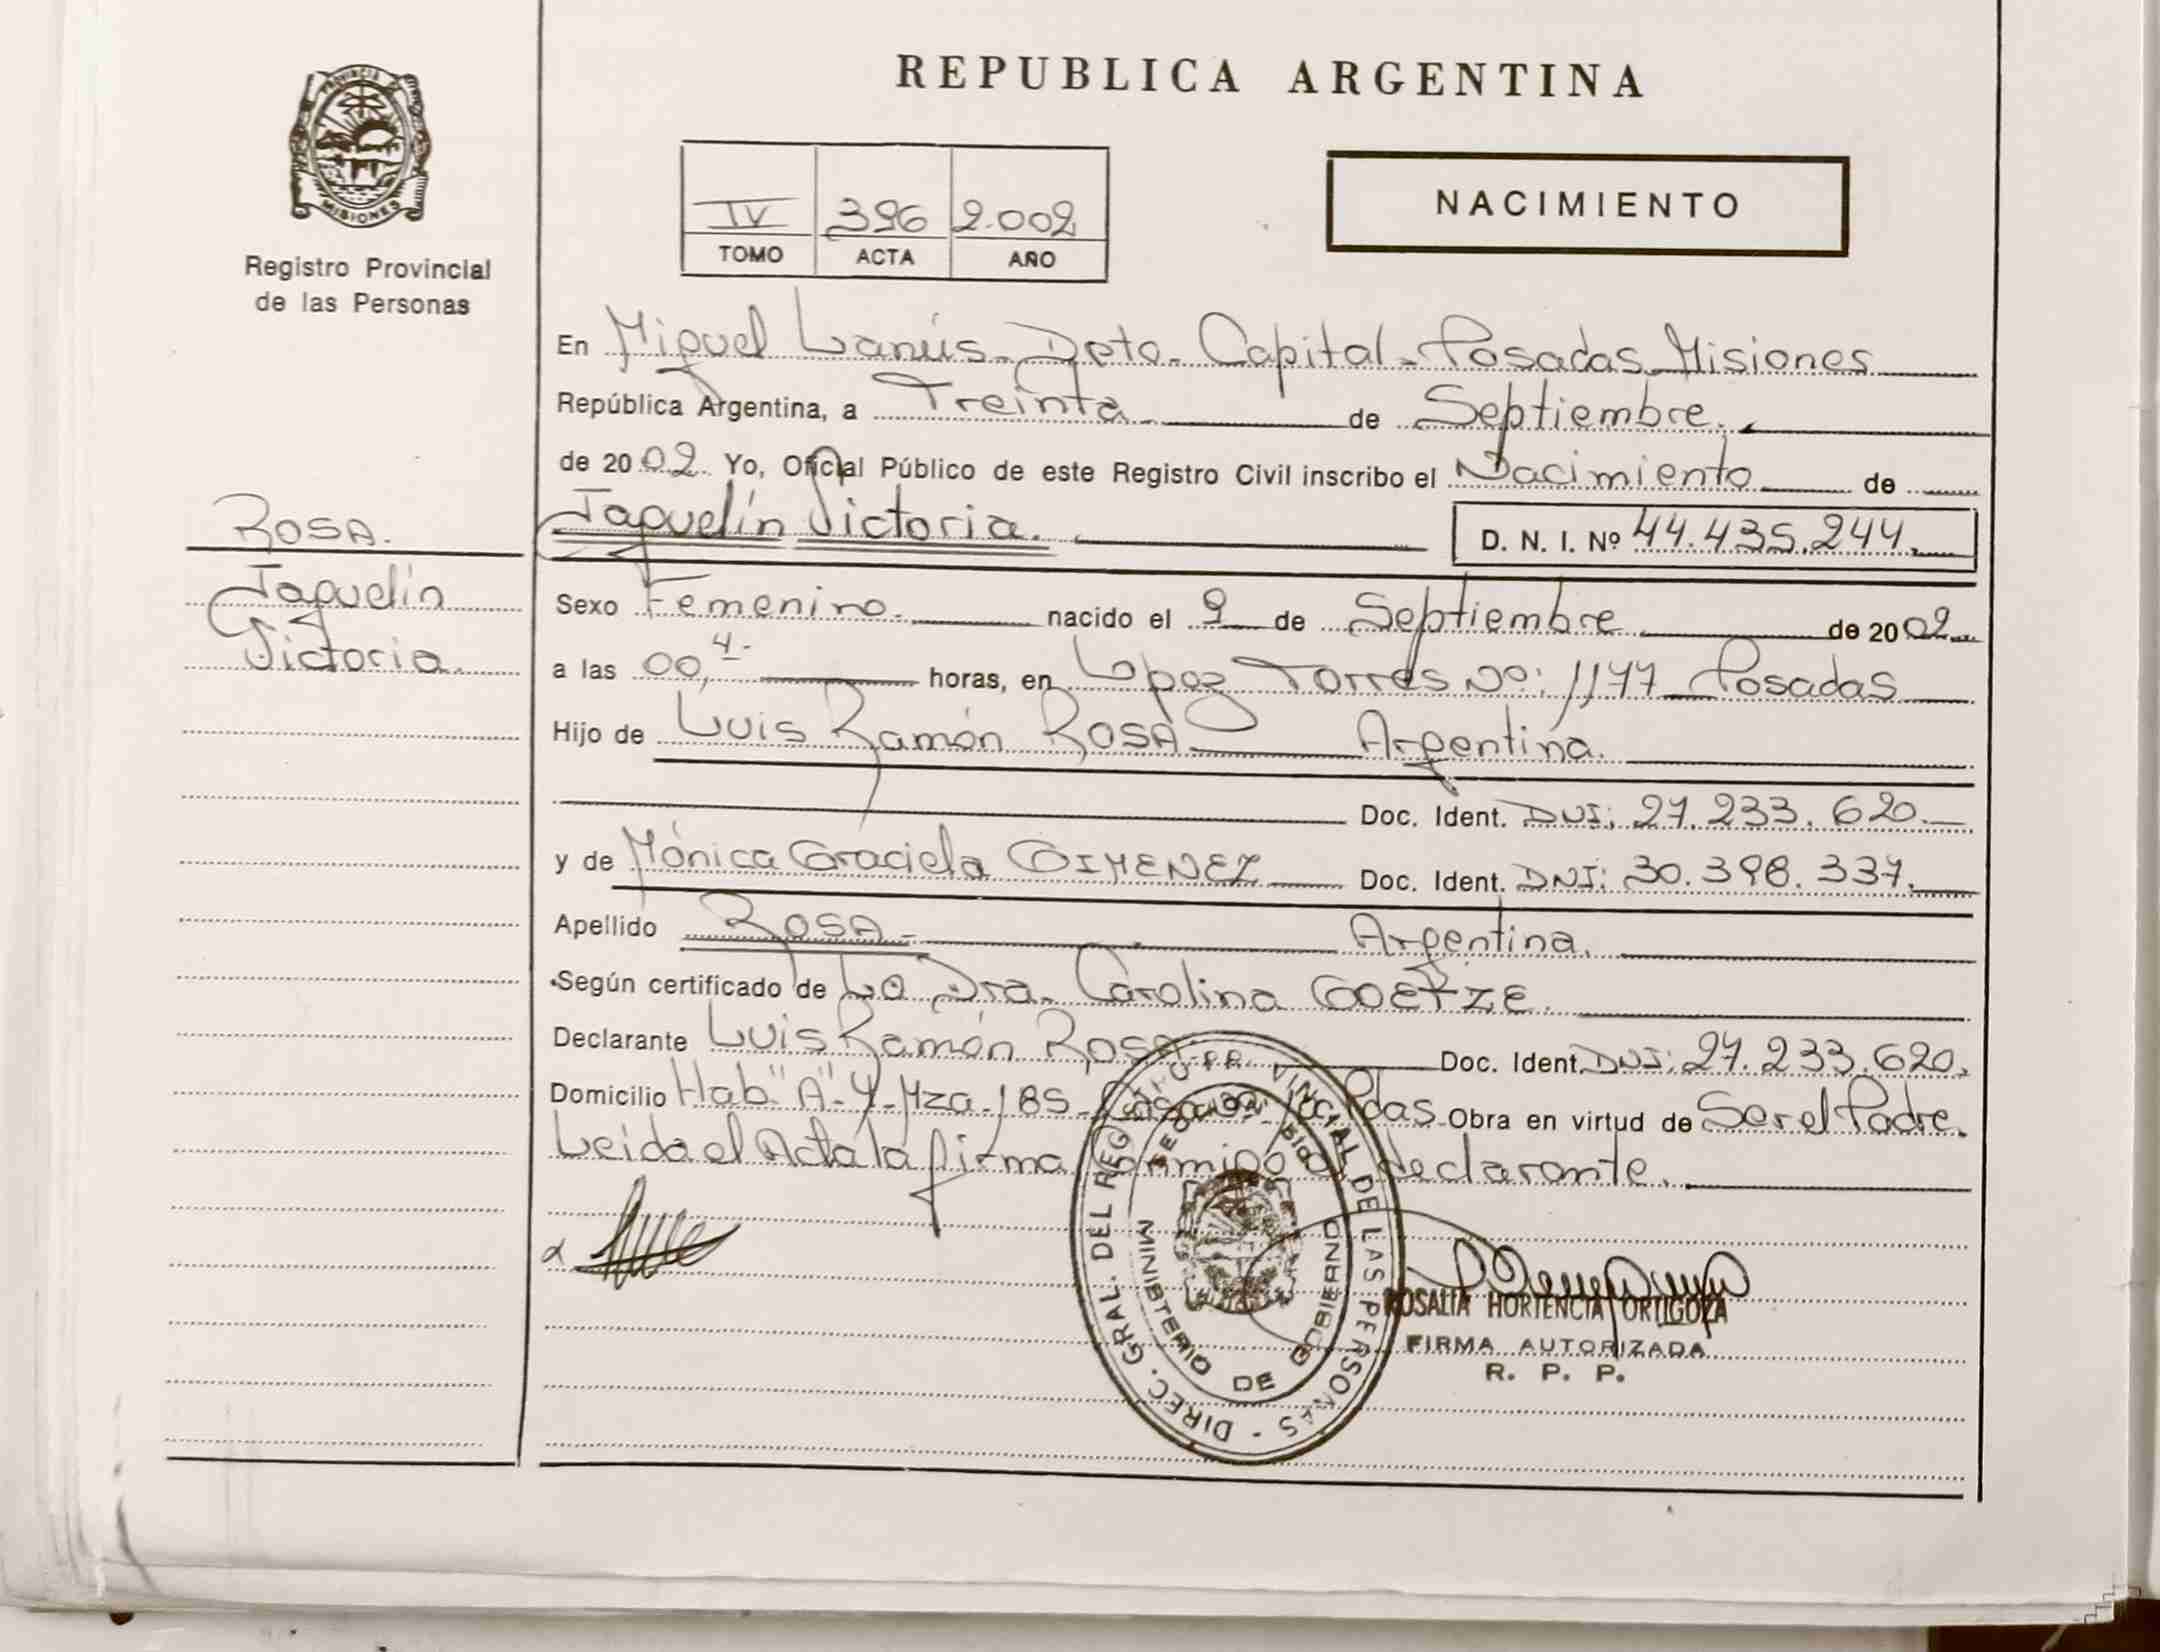 REPUBLICA ARGENTINA
PROVINCIA DE MISIONES
Registro Provincial
de las Personas
IV 396 2.002
TOMO ACTA AÑO
NACIMIENTO
En Miguel Lanús - Dpto - Capital - Posadas Misiones
República Argentina, a Treinta de Septiembre.
de 2002 Yo, Oficial Público de este Registro Civil inscribo el Nacimiento de
Jaquelín Victoria. D. N. I. Nº 44.435.244.
ROSA.
Jaquelín
Victoria.
Sexo Femenino. nacido el 9 de Septiembre de 2002
a las 00,4- horas, en López Torres Nº: 1177 Posadas
Hijo de Luis Ramón ROSA Argentina.
Doc. Ident. DNI: 27.233.620.
y de Mónica Graciela GIMENEZ Doc. Ident. DNI: 30.398.337.
Apellido ROSA - Argentina.
Según certificado de La Dra. Carolina GOETZE.
Declarante Luis Ramón Rosa Doc. Ident. DNI: 27.233.620.
Domicilio Hab "A" 4 - Mza - 185 - Obra en virtud de Ser el Padre.
Leida el Acta la firma conmigo el declarante.
DIREC. GRAL. DEL REGISTRO PROVINCIAL DE LAS PERSONAS -
MINISTERIO DE GOBIERNO
ROSALIA HORTENCIA ORTIGOZA
FIRMA AUTORIZADA
R. P. P.